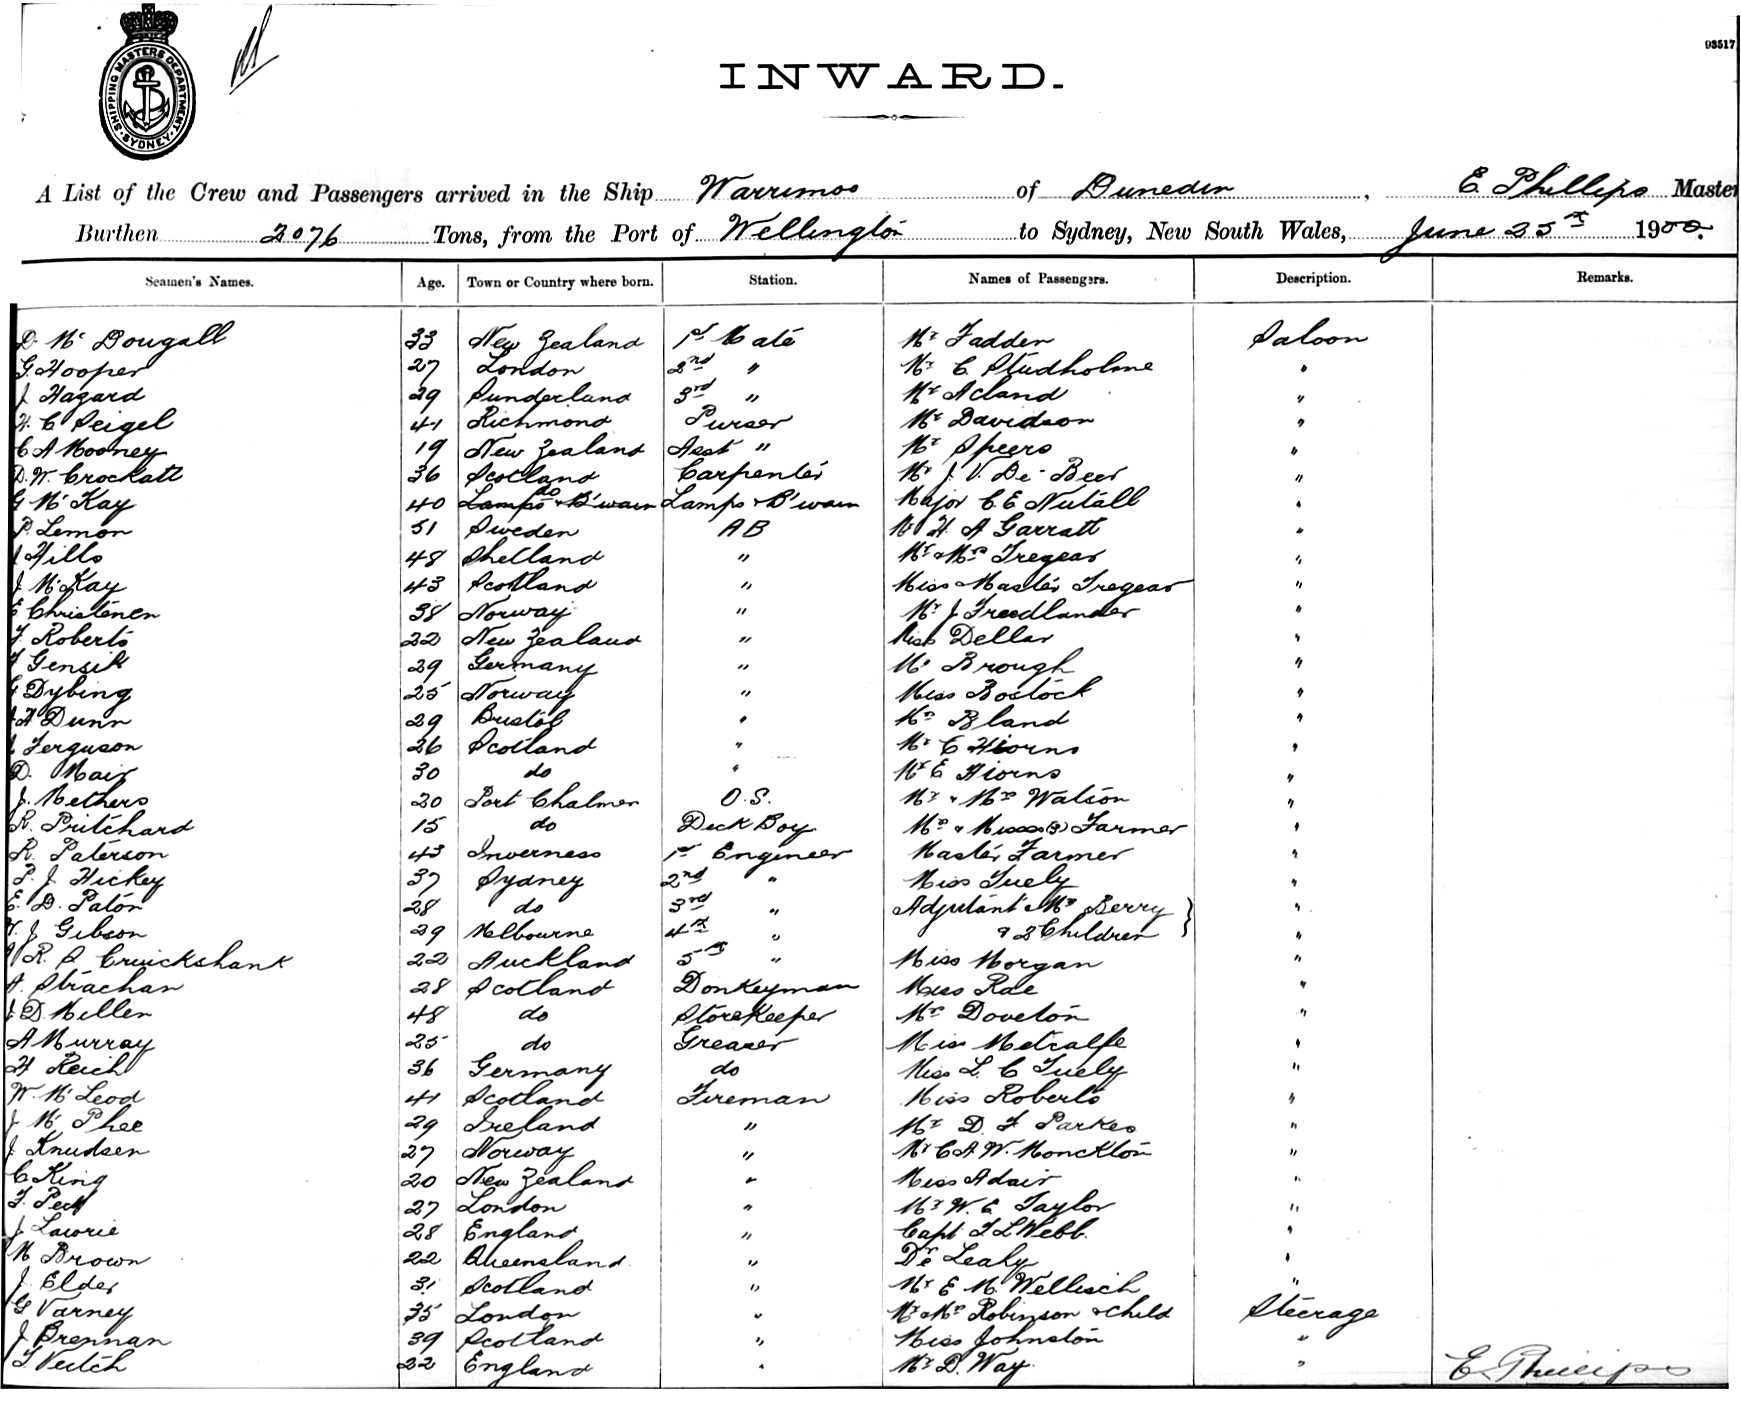 SHIPPING MASTERS DEPARTMENT
SYDNEY
93517
INWARD.
A List of the Crew and Passengers arrived in the Ship Warrimoo of Dunedin, E. Phillips Master
Burthen 2076 Tons, from the Port of Wellington to Sydney, New South Wales, June 25th 1900.
Seamen's Names. Age. Town or Country where born. Station. Names of Passengers. Description. Remarks.
D. Mc Dougall 33 New Zealand 1st Mate Mr Fadden Saloon
G. Hooper 27 London 2nd " Mr C. Studholme "
J Hazard 29 Sunderland 3rd " Mr Acland "
H. C Seigel 41 Richmond Purser Mr Davidson "
C A Mooney 19 New Zealand Asst " Mr Speers "
D. W. Crockatt 36 Scotland Carpenter Mr J. V. De Beer "
G Mc Kay 40 do Lamps & B'wain Lamps & B'wain Major C. E Nutall "
P. Lemon 51 Sweden AB H. A Garratt "
J Hills 48 Shetland " Mr & Mrs Tregear "
J McKay 43 Scotland " Miss & Master Tregear "
E Christensen 38 Norway " Mr J Freedlander "
F. Roberts 22 New Zealand " Miss Dellar "
F Gensik 29 Germany " Mr Brough "
G Dybing 25 Norway " Miss Bostock "
H Dunn 29 Bristol " Mrs Bland "
Ferguson 26 Scotland " Mr C Hiorns "
D. Mair 30 do " Mr E Hiorns "
J. Methers 20 Port Chalmer O.S. Mr & Mrs Watson "
R. Pritchard 15 do Deck Boy Mrs & Misses (3) Farmer "
R. Paterson 43 Inverness 1st Engineer Master Farmer "
P. J. Hickey 37 Sydney 2nd " Miss Tuely "
E. D. Paton 28 do 3rd " Adjutant & Mrs Berry "
J Gibson 29 Melbourne 4th " & 2 Children "
R. S Cruickshank 22 Auckland 5th " Miss Morgan "
A. Strachan 28 Scotland Donkeyman Miss Rae "
J D. Miller 48 do Storekeeper Mrs Doveton "
A Murray 25 do Greaser Miss Metcalfe "
H Reich 36 Germany do Miss L. C Tuely "
W. Mc Leod 41 Scotland Fireman Miss Roberts "
J Mc Phee 29 Ireland " Mr D. F Parkes "
J Knudsen 27 Norway " Mr C A W. Monckton "
C King 20 New Zealand " Miss Adair "
F. Peck 27 London " Mr W. E Taylor "
J Lawrie 28 England " Capt F L Webb. "
M Brown 22 Queensland " Dr Leahy "
J. Elder 31 Scotland " Mr E M. Wellisch "
G Varney 35 London " Mr & Mrs Robinson & Child Steerage
J Brennan 39 Scotland " Miss Johnston "
F Veitch 22 England " Mr D. Way "
E. Phillips